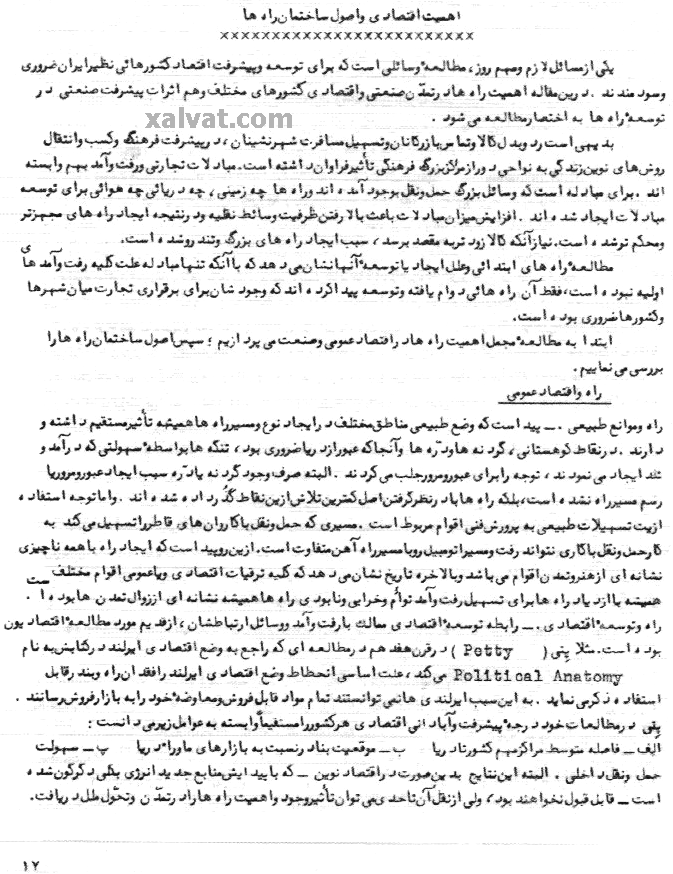 اهمیت اقتصادی واصول ساختمان راه ها
xxxxxxxxxxxxxxxxxxxxxxxxxx
یکی ازمسائل لازم ومهم روز، مطالعهٔ وسائلی است که برای توسعه وپیشرفت اقتصاد کشورهائی نظیرایران ضروری
وسودمندند . درین مقاله اهمیت راه هادرتمدّن صنعتی واقتصادی کشورهای مختلف وهم اثرات پیشرفت صنعتی در
توسعهٔ راه ها به اختصارمطالعه می شود .
xalvat.com
بدیهی است ردوبدل کالا وتماس بازرگانان وتسهیل مسافرت شهرنشینان ، درپیشرفت فرهنگ وکسب وانتقال
روش های نوین زندگی به نواحی دورازمراکزبزرگ فرهنگی تأثیرفراوان داشته است. مبادلات تجارتی ورفت وآمد بهم وابسته
اند . برای مبادله است که وسائل بزرگ حمل ونقل بوجود آمده اند وراه ها چه زمینی ، چه دریائی چه هوائی برای توسعه
مبادلات ایجاد شده اند . افزایش میزان مبادلات باعث بالا رفتن ظرفیت وسائط نقلیه ودرنتیجه ایجاد راه های مجهزتر
ومحکم ترشده است. نیازآنکه کالا زودتربه مقصد برسد ، سبب ایجاد راه های بزرگ وتندروشده است.
مطالعهٔ راه های ابتدائی وعلل ایجاد یاتوسعهٔ آنهانشان می دهد که باآنکه تنهامبادله علت کلیه رفت وآمدهای
اولیه نبوده است، فقط آن راه هائی دوام یافته وتوسعه پیداکرده اند که وجودشان برای برقراری تجارت میان شهرها
وکشورهاضروری بوده است.
ابتدا به مطالعهٔ مجمل اهمیت راه هادراقتصادعمومی وصنعت می پردازیم ؛ سپس اصول ساختمان راه هارا
بررسی می نمائیم .
راه واقتصاد عمومی
راه وموانع طبیعی . — پیداست که وضع طبیعی مناطق مختلف درایجاد نوع ومسیرراه هاهمیشه تأثیرمستقیم داشته و
دارند . درنقاط کوهستانی ، گردنه هاودرّه ها وآنجاکه عبورازدریاضروری بود ، تنگه هابواسطهٔ سهولتی که درآمدو
شد ایجاد می نمودند ، توجه رابرای عبورومرورجلب می کردند . البته صرف وجود گردنه یادرّه سبب ایجاد عبورومروریا
رسم مسیرراه نشده است، بلکه راه هاباد رنظرگرفتن اصل کمترین تلاش ازین نقاط گذرداده شده اند . واماتوجه استفاده
ازیت تسهیلات طبیعی به پرورش فنی اقوام مربوط است . مسیری که حمل ونقل باکاروان های قاطرراتسهیل می کند به
کارحمل ونقل باگاری نتواند رفت ومسیراتومبیل روبامسیرراه آهن متفاوت است. ازین روپیداست که ایجاد راه باهمه ناچیزی
نشانه ای ازهنروتمدن اقوام می باشد وبالاخره تاریخ نشان می دهد که کلیه ترقیات اقتصادی ویاعمومی اقوام مختلف
همیشه باازدیاد راه هابرای تسهیل رفت وآمد توأم وخرابی ونابودی راه هاهمیشه نشانه ای اززوال تمدن هابوده است .
راه وتوسعهٔ اقتصادی . — رابطه توسعهٔ اقتصادی ممالک بارفت وآمد ووسائل ارتباطشان ، ازقدیم مورد مطالعهٔ اقتصادیون
بوده است. مثلا پتی ( Petty ) درقرن هفدهم درمطالعه ای که راجع به وضع اقتصادی ایرلند درکتابش به نام
Political Anatomy می کند ، علت اساسی انحطاط وضع اقتصادی ایرلند رافقدان راه وبندرقابل
استفاده ذکرمی نماید . به این سبب ایرلندی هانمی توانستند تمام مواد قابل فروش ومعاوضهٔ خود رابه بازارفروش رسانند .
پتی درمطالعات خود درجهٔ پیشرفت وآبادانی اقتصادی هرکشوررامستقیماً وابسته به عوامل زیرمی دانست :
الف — فاصله متوسط مراکزمهم کشورتادریا    ب — موقعیت بنادرنسبت به بازارهای ماوراء دریا    پ — سهولت
حمل ونقل داخلی . البته این نتایج بدین صورت دراقتصاد نوین — که باپیدایش منابع جدید انرژی بکلی دگرگون شده
است — قابل قبول نخواهند بود ، ولی ازنقل آن تاحدی می توان تأثیروجود واهمیت راه هارادرتمدّن وتحوّل ملل دریافت.
۱۷